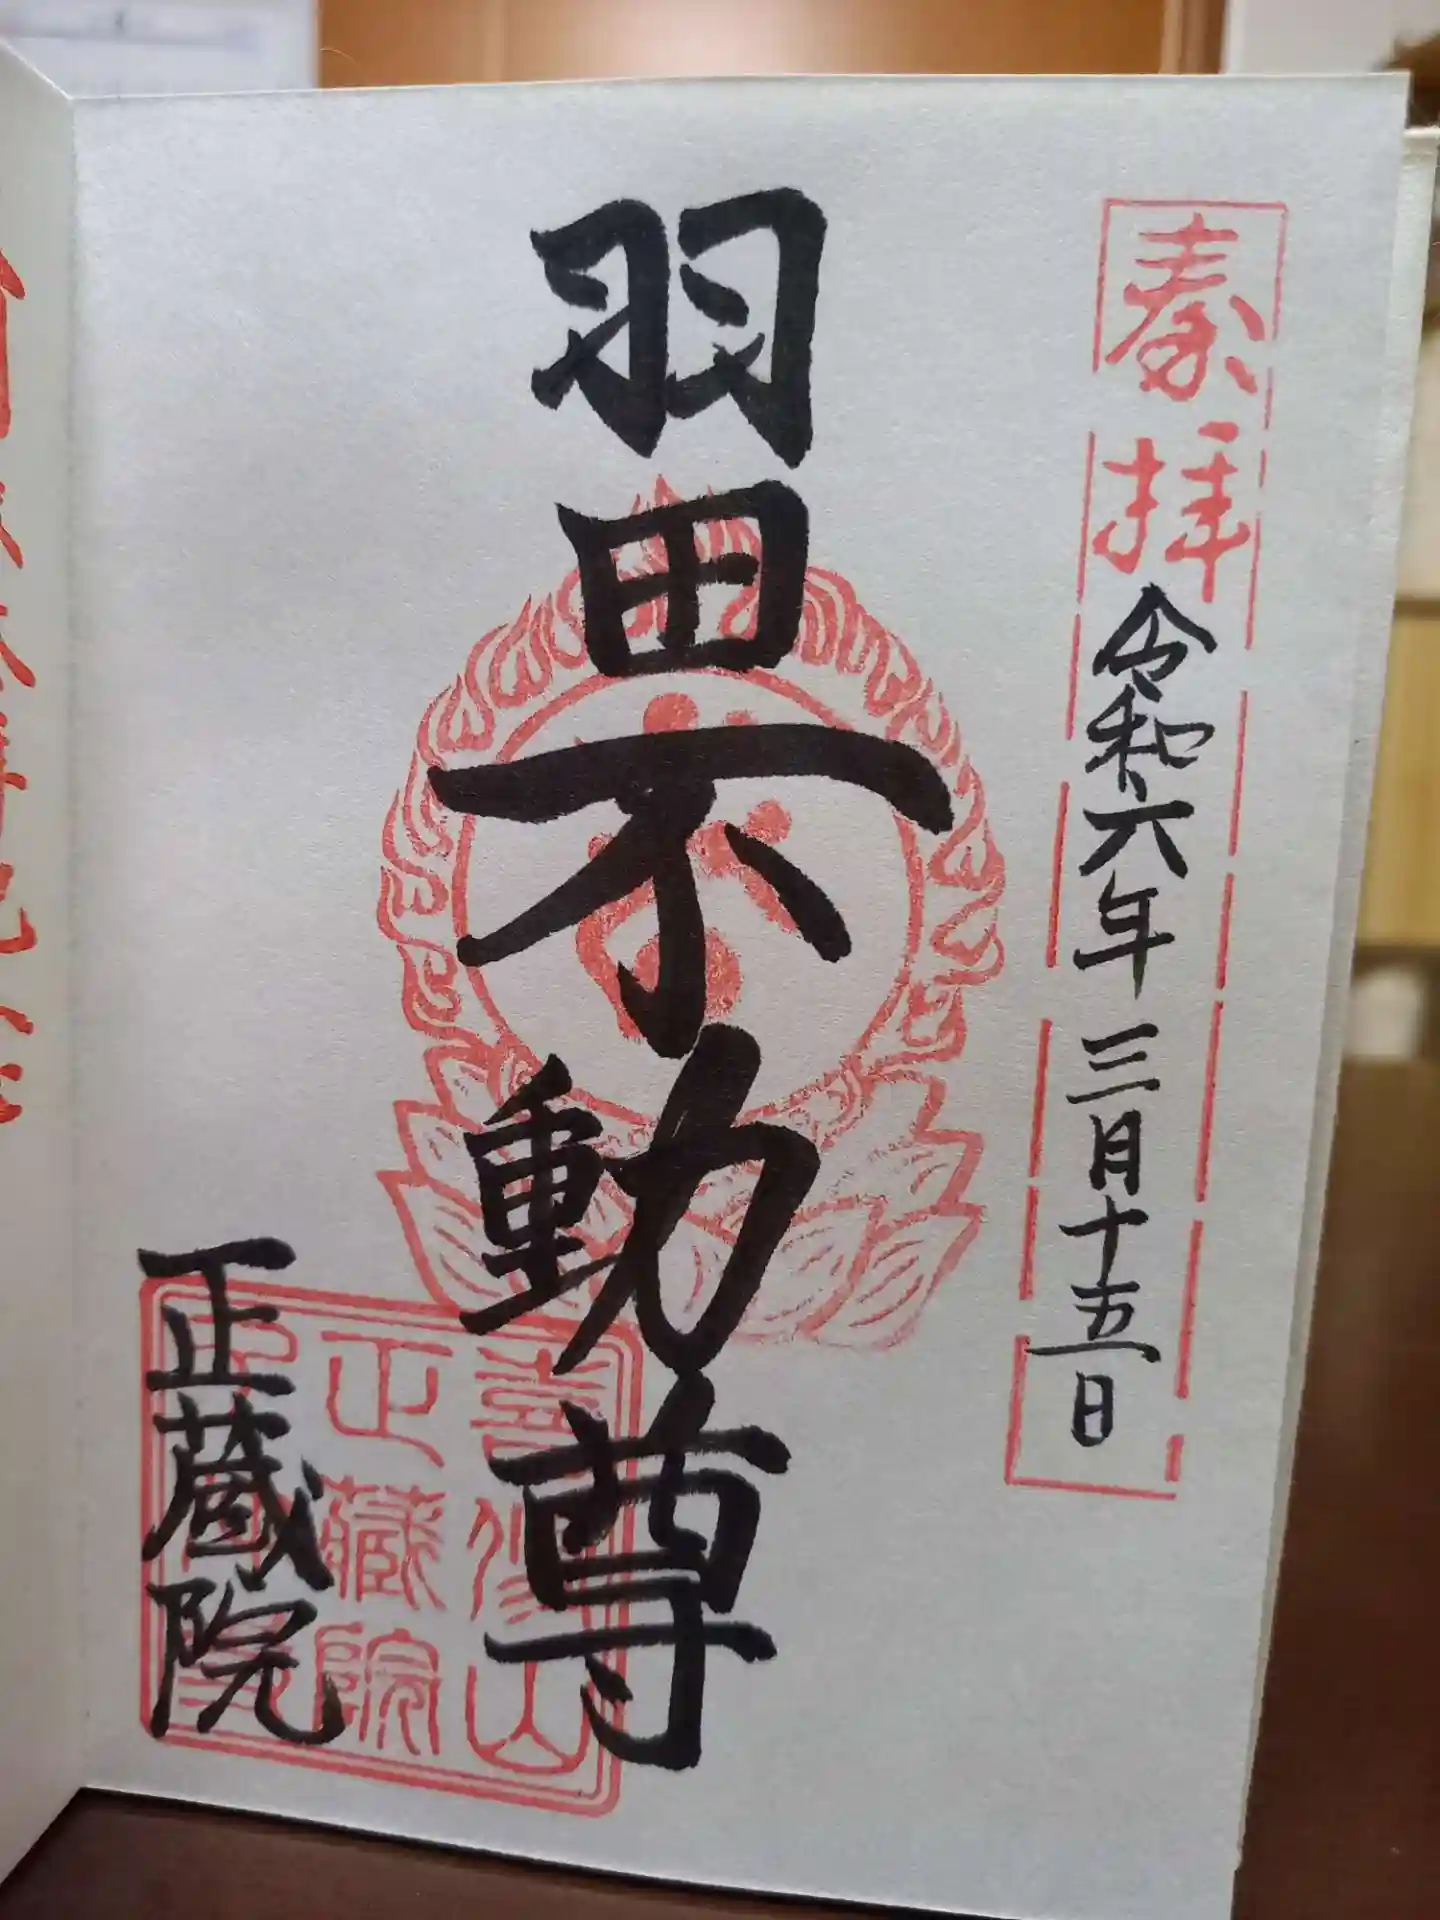 奉拝
令和六年三月十五日
羽田不動尊
正蔵院
正藏院